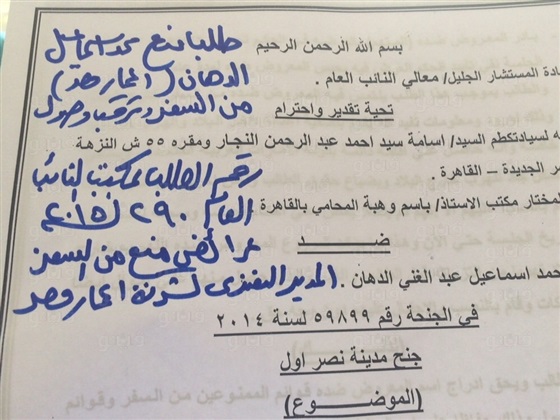 طلب بمنع محمد اسماعيل
بسم الله الرحمن الرحيم
الدهان (اعمار مصر)
ادة المستشار الجليل/ معالي النائب العام .
من السفر وترقب وصول
تحية تقدير واحترام
ه لسيادتكم السيد/ اسامة سيد احمد عبد الرحمن النجار ومقره ٥٥ ش النزهة
رقم الطلب بمكتب النائب
ر الجديدة – القاهرة .
العام ٢٩ ل ٢٠١٥
لمختار مكتب الاستاذ/ باسم وهبة المحامي بالقاهرة
عرائض منع من السفر
ضــــــــد
حمد اسماعيل عبد الغني الدهان .
المدير التنفيذى لشركة اعمار مصر
في الجنحة رقم ٥٩٨٩٩ لسنة ٢٠١٤
جنح مدينة نصر اول
(الموضـــــوع)